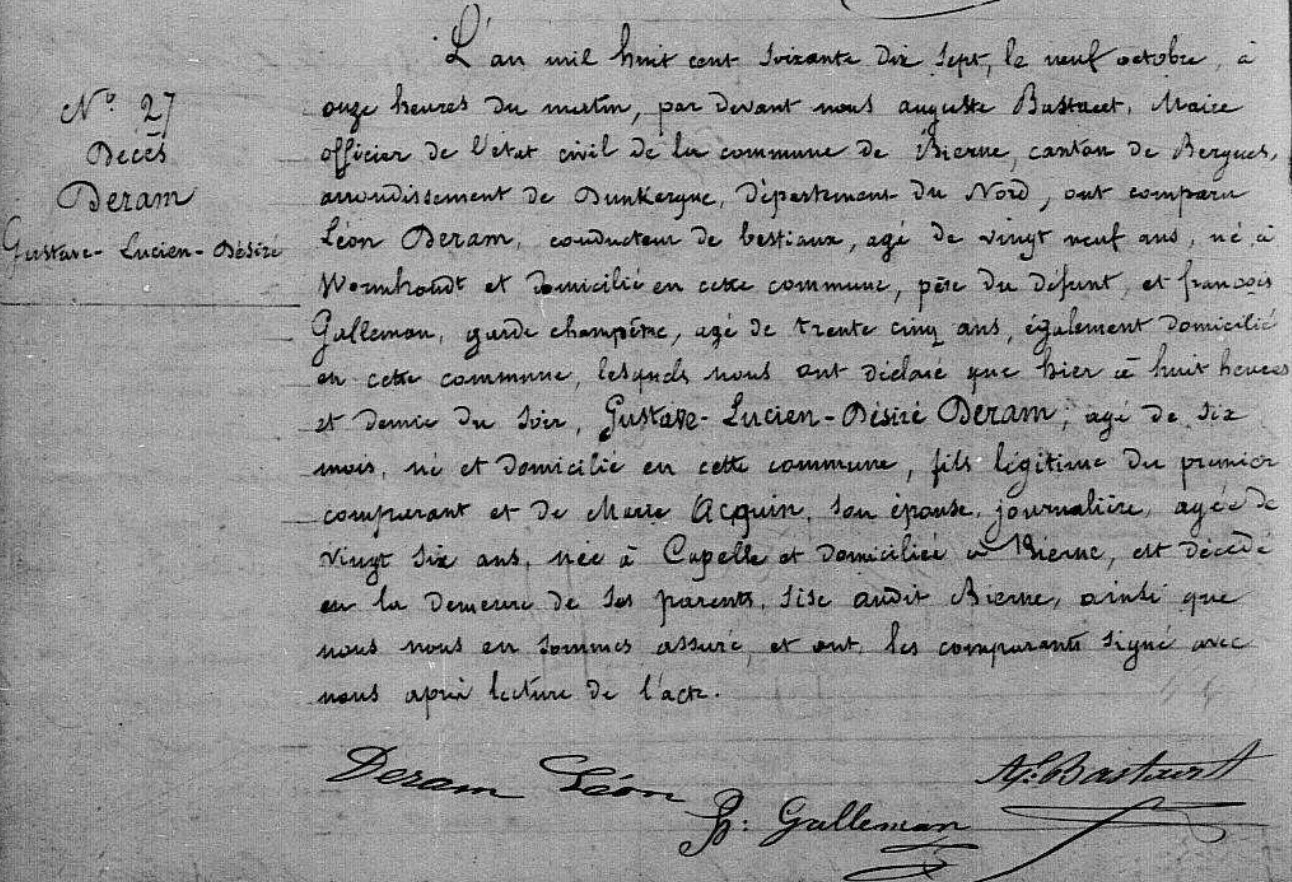 N° 27
Décès
Deram
Gustave-Lucien-Désiré
L'an mil huit cent soixante dix sept, le neuf octobre, à
onze heures du matin, par devant nous auguste Bastaert, Maire
officier de l'état civil de la commune de Bierne, canton de Bergues,
arrondissement de Dunkerque, Département du Nord, ont comparu
Léon Deram, conducteur de bestiaux, agé de vingt neuf ans, né à
Wormhoudt et domicilié en cette commune, père du défunt, et françois
Galleman, garde champêtre, agé de trente cinq ans, également domicilié
en cette commune, lesquels nous ont déclaré que hier à huit heures
et demie du soir, Gustave-Lucien-Désiré Deram, agé de six
mois, né et domicilié en cette commune, fils légitime du premier
comparant et de Marie Acquin, son épouse, journalière, agée de
vingt six ans, née à Capelle et domiciliée à Bierne, est décédé
en la demeure de ses parents, sise audit Bierne, ainsi que
nous nous en sommes assuré, et ont, les comparants signé avec
nous après lecture de l'acte.
Deram Léon
At. Bastaert
f: Galleman